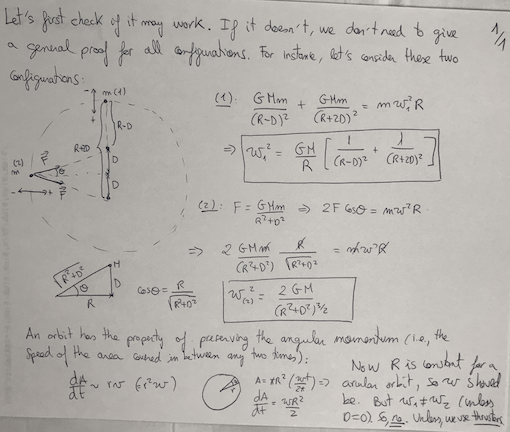 Let's first check if it may work. If it doesn't, we don't need to give
1/1
a general proof for all configurations. For instance, let's consider these two
configurations:
m (1)
R-D
R+2D
D
D
(2)
m
F
θ
F
- +
- +
(1): GMm/(R-D)² + GMm/(R+2D)² = mω₁²R
⇒ ω₁² = GM/R [ 1/(R-D)² + 1/(R+2D)² ]
(2): F = GMm/(R²+D²) ⇒ 2F cosθ = mω²R
⇒ 2 GMm/(R²+D²) R/√(R²+D²) = mω²R
√(R²+D²) M
θ D
R
cosθ = R/√(R²+D²)
ω₍₂₎² = 2GM/(R²+D²)^3/2
An orbit has the property of preserving the angular momentum (i.e., the
speed of the area covered in between any two times):
dA/dt ~ rv (r²ω)
r
A = πR² (ωt/2π) ⇒
dA/dt = ωR²/2
Now R is constant for a
circular orbit, so ω should
be. But ω₁ ≠ ω₂ (unless
D=0). So, no. Unless, we use thrusters